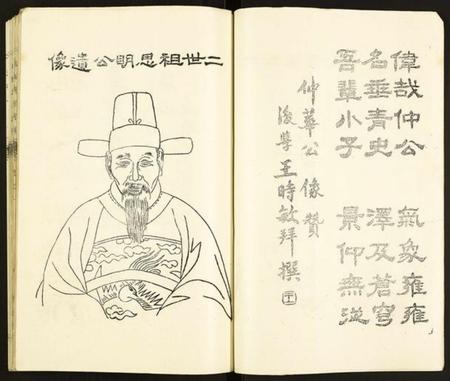 偉哉仲公 氣象雍雍
名垂青史 澤及蒼穹
吾輩小子 景仰無
仲華公 像贊
後學王時敏拜撰
二世祖思明公遺像